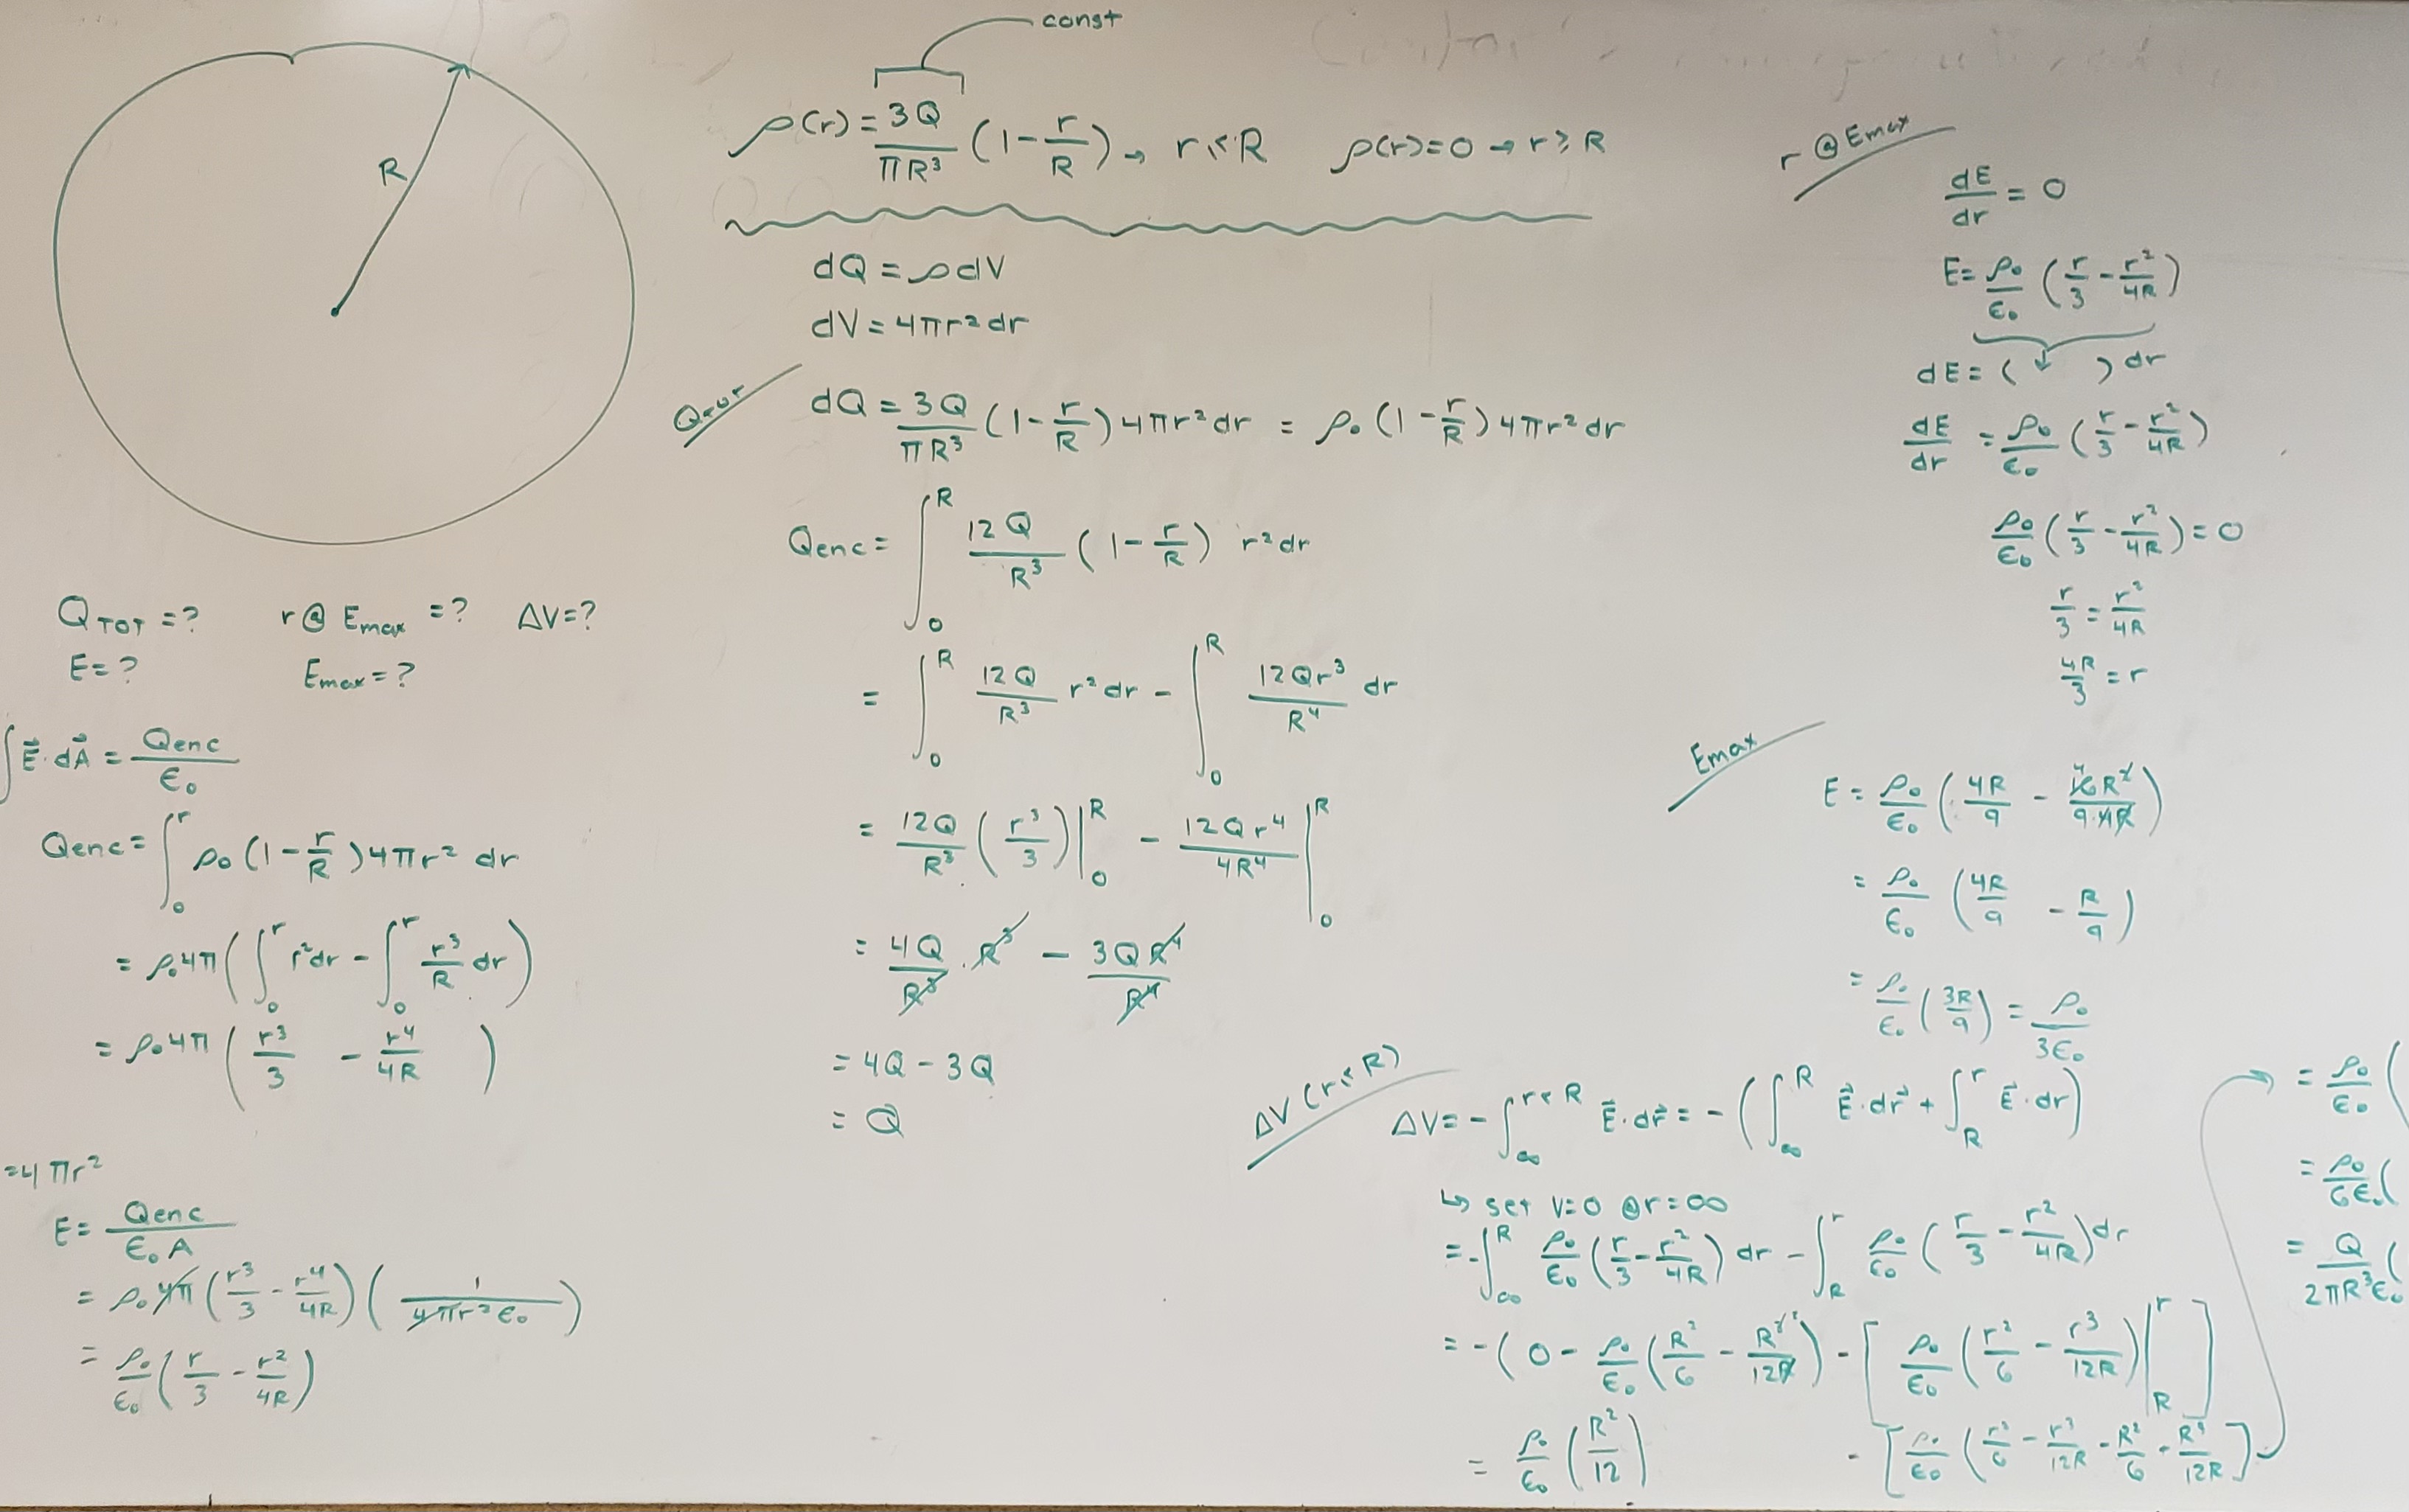 const
ρ(r) = 3Q/πR³ (1 - r/R) → r ≤ R    ρ(r) = 0 → r ≥ R
R
Q_TOT = ?    r @ Emax = ?    ΔV = ?
E = ?    Emax = ?
∫ E⃗·dA⃗ = Qenc/ε₀
Qenc = ∫₀^r ρ₀ (1 - r/R) 4πr² dr
= ρ₀4π (∫₀^r r²dr - ∫₀^r r³/R dr)
= ρ₀4π (r³/3 - r⁴/4R)
= 4πr²
E = Qenc/ε₀A
= ρ₀4π (r³/3 - r⁴/4R) (1/4πr²ε₀)
= ρ₀/ε₀ (r/3 - r²/4R)
dQ = ρdV
dV = 4πr²dr
Q_TOT
dQ = 3Q/πR³ (1 - r/R) 4πr²dr = ρ₀ (1 - r/R) 4πr²dr
Qenc = ∫₀^R 12Q/R³ (1 - r/R) r²dr
= ∫₀^R 12Q/R³ r²dr - ∫₀^R 12Qr³/R⁴ dr
= 12Q/R³ (r³/3)|₀^R - 12Qr⁴/4R⁴ |₀^R
= 4Q/R³ · R³ - 3QR⁴/R⁴
= 4Q - 3Q
= Q
r @ Emax
dE/dr = 0
E = ρ₀/ε₀ (r/3 - r²/4R)
dE = ( ↓ ) dr
dE/dr = ρ₀/ε₀ (r/3 - r²/4R)
ρ₀/ε₀ (r/3 - r²/4R) = 0
r/3 = r²/4R
4R/3 = r
Emax
E = ρ₀/ε₀ (4R/9 - 16R²/9·4R)
= ρ₀/ε₀ (4R/9 - R/9)
= ρ₀/ε₀ (3R/9) = ρ₀/3ε₀
ΔV (r ≤ R)
ΔV = - ∫_∞^{r<R} E⃗·dr⃗ = - (∫_∞^R E⃗·dr⃗ + ∫_R^r E⃗·dr)
↳ set V=0 @ r=∞
= - ∫_∞^R ρ₀/ε₀ (r/3 - r²/4R) dr - ∫_R^r ρ₀/ε₀ (r/3 - r²/4R) dr
= - (0 - ρ₀/ε₀ (R²/6 - R³/12R) - [ρ₀/ε₀ (r²/6 - r³/12R) |_R^r]
= ρ₀/ε₀ (R²/12) - [ρ₀/ε₀ (r²/6 - r³/12R - R²/6 - R³/12R]
= ρ₀/ε₀ (
= ρ₀/6ε₀ (
= Q/2πR³ε₀ (